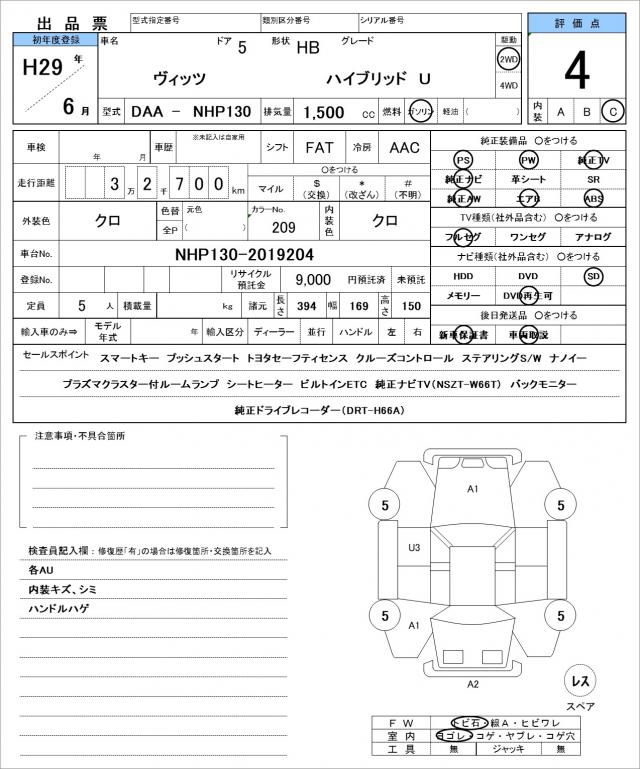 出品票 型式指定番号 類別区分番号 シリアル番号 評価点
初年度登録 車名 ドア 5 形状 HB グレード 駆動
H29 年 ヴィッツ ハイブリッド U 2WD 4
6 月 4WD
型式 DAA － NHP130 排気量 1,500 cc 燃料 ガソリン 軽油 ( ) 内装 A B C
車検 年 月 車歴 ※未記入は自家用 シフト FAT 冷房 AAC 純正装備品 〇をつける
PS PW 純正TV
走行距離 3 万 2 千 7 0 0 km 〇をつける 純正ナビ 革シート SR
マイル $ (交換) * (改ざん) # (不明) 純正AW エアB ABS
外装色 クロ 色替 元色 カラーNo. 209 内装色 クロ TV種類(社外品含む) 〇をつける
全P ( ) フルセグ ワンセグ アナログ
車台No. NHP130-2019204 ナビ種類(社外品含む) 〇をつける
登録No. リサイクル預託金 9,000 円預託済 未預託 HDD DVD SD
定員 5 人 積載量 kg 諸元 長さ 394 幅 169 高さ 150 メモリー DVD再生可
後日発送品 〇をつける
輸入車のみ⇒ モデル年式 年 輸入区分 ディーラー 並行 ハンドル 左 右 新車保証書 車両取説
セールスポイント スマートキー プッシュスタート トヨタセーフティセンス クルーズコントロール ステアリングS/W ナノイー
プラズマクラスター付ルームランプ シートヒーター ビルトインETC 純正ナビTV(NSZT-W66T) バックモニター
純正ドライブレコーダー(DRT-H66A)
注意事項・不具合箇所
検査員記入欄：修復歴「有」の場合は修復箇所・交換箇所を記入
各AU
内装キズ、シミ
ハンドルハゲ
A1
5 5
U3
5 A1 5
A2
レス
スペア
FW トビ石・線A・ヒビワレ
室内 ヨゴレ・コゲ・ヤブレ・コゲ穴
工具 無 ジャッキ 無